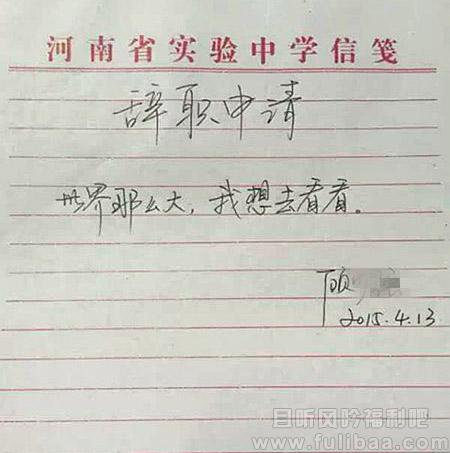 河南省实验中学信笺
辞职申请
世界那么大，我想去看看。
顾
2015.4.13
且听风吟福利吧
www.fulibaa.com